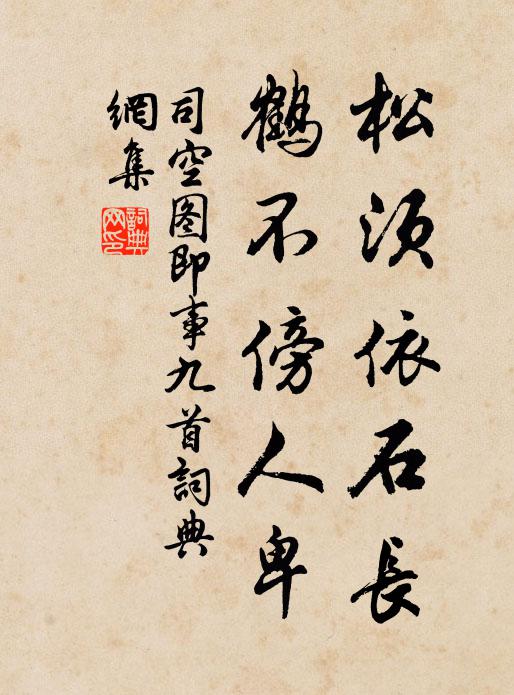 松須依石長
鶴不傍人卑
司空图即事九首詞典
網集
詞典網印